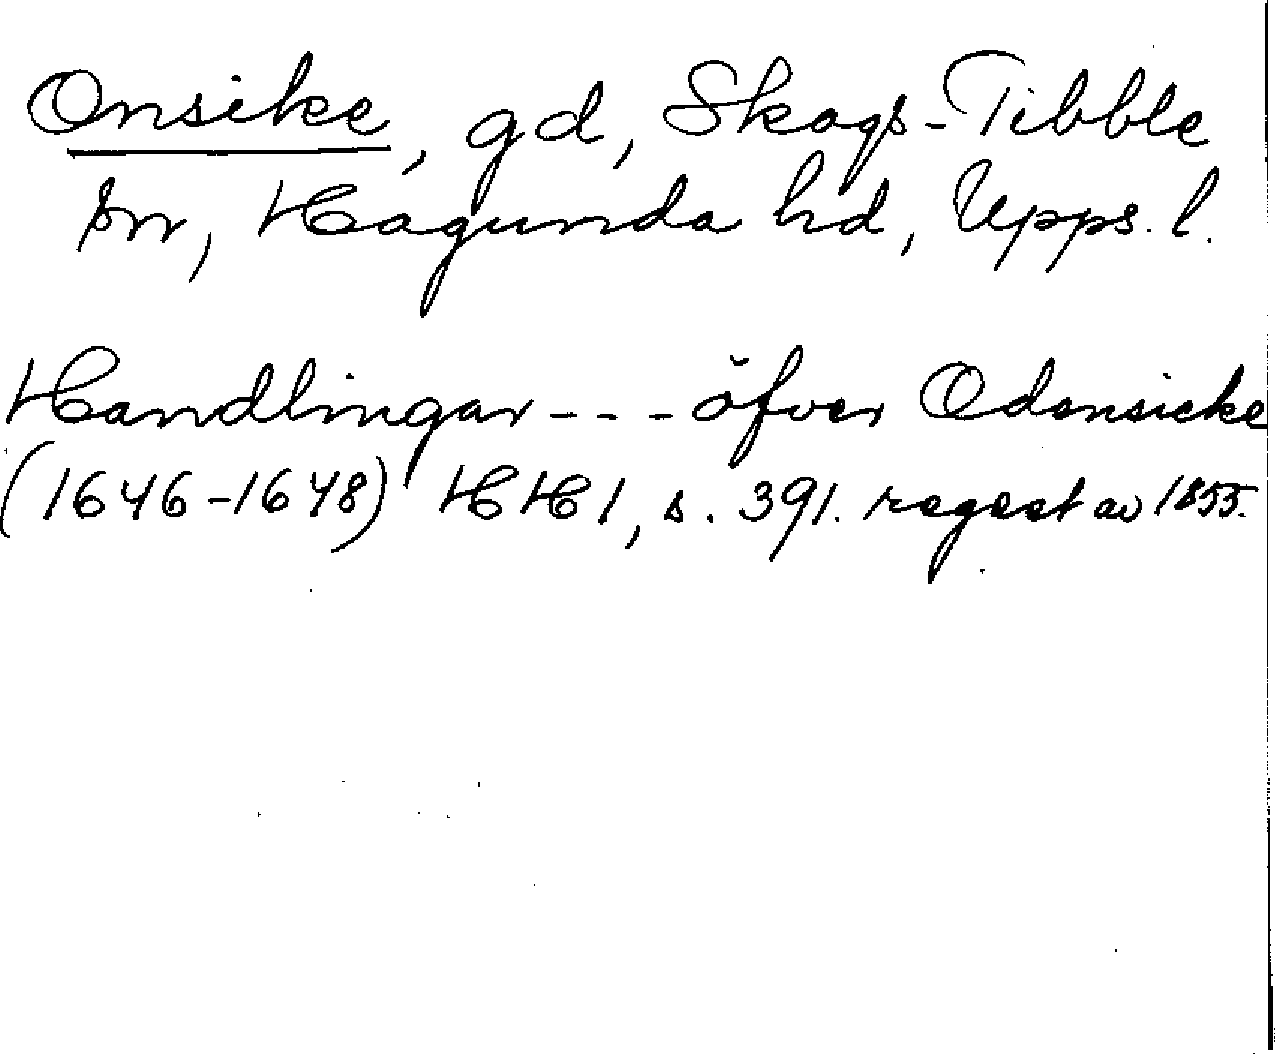 Onsike, gd, Skogs-Tibble
sn, Hagunda hd, Upps. l.
Handlingar - - - öfver Odensicke
(1646-1648) HH 1, s. 391. regest av 1855.